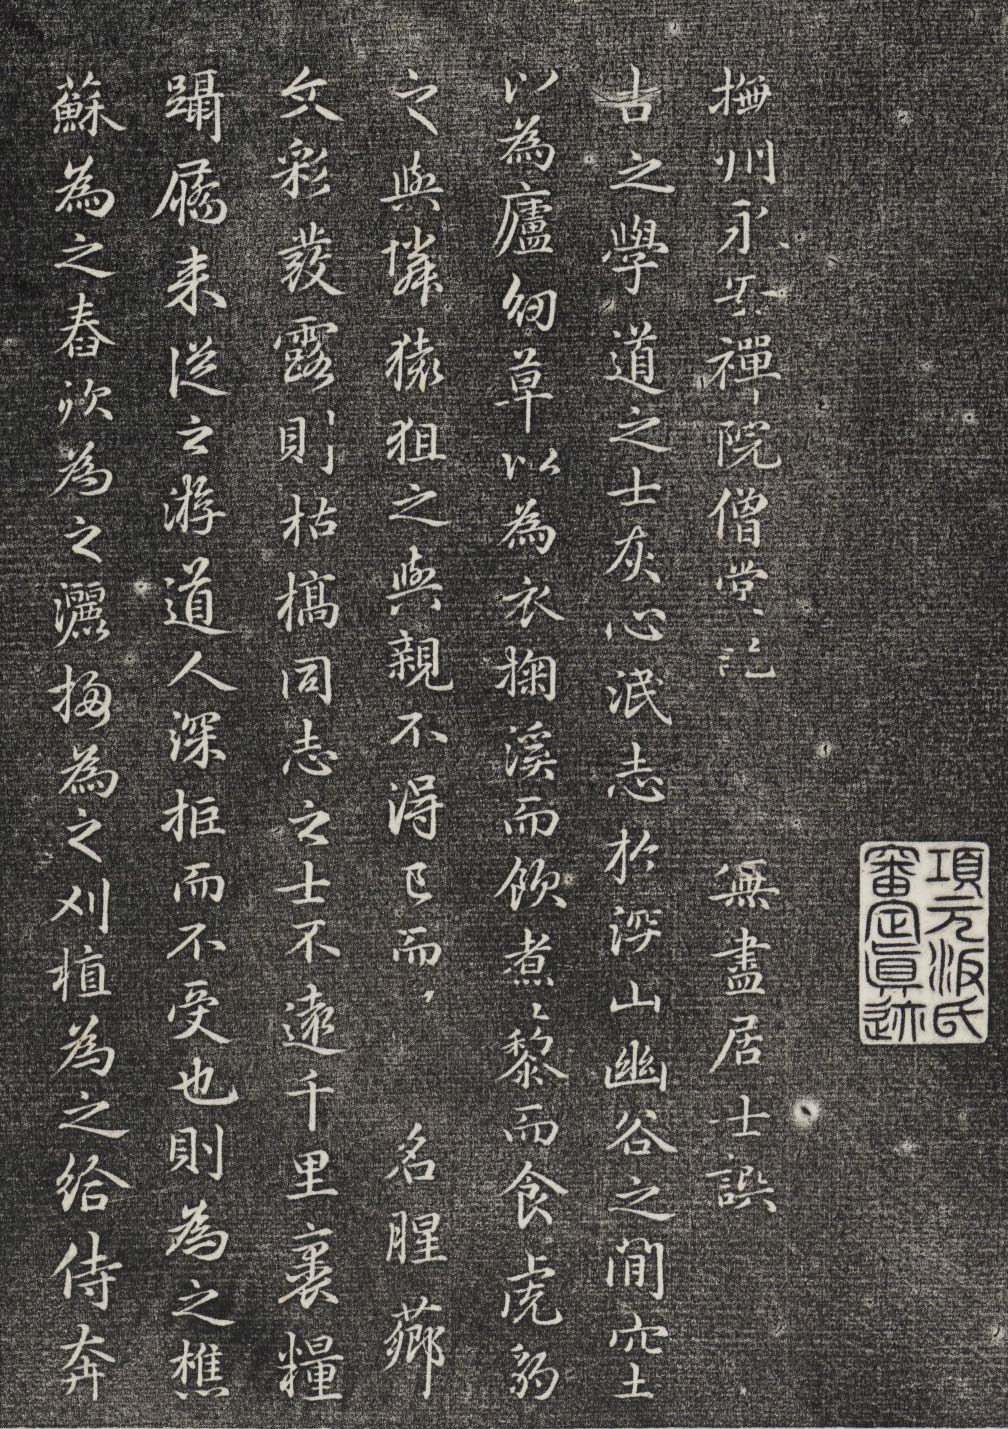 項元汴氏
審定真迹
撫州永安禪院僧堂記 無盡居士譔
古之學道之士灰心泯志於深山幽谷之間穴土
以為廬紉草以為衣掬溪而飲煮藜而食虎豹
之與憐猿狙之與親不得已而 名腥薌
文彩發露則枯槁同志之士不遠千里裹糧
躡屩来從之游道人深拒而不受也則為之樵
蘇為之舂炊為之灑掃為之刈植為之給侍奔